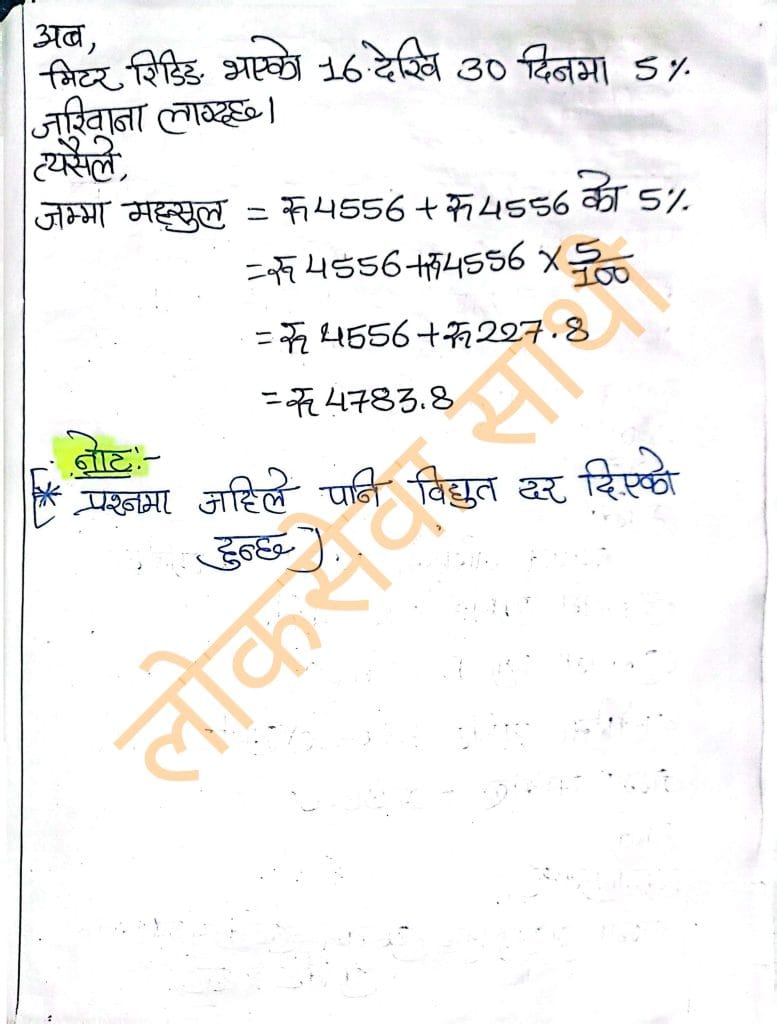 अब,
मिटर रिडिङ भएको 16 देखि 30 दिनमा 5%
जरिवाना लाग्दछ।
त्यसैले,
जम्मा महसुल = रू 4556 + रू 4556 को 5%
= रू 4556 + रू 4556 × 5/100
= रू 4556 + रू 227.8
= रू 4783.8
नोट:-
* प्रश्नमा जहिले पनि विद्युत दर दिएको
हुन्छ।
लोकसेवा साथी